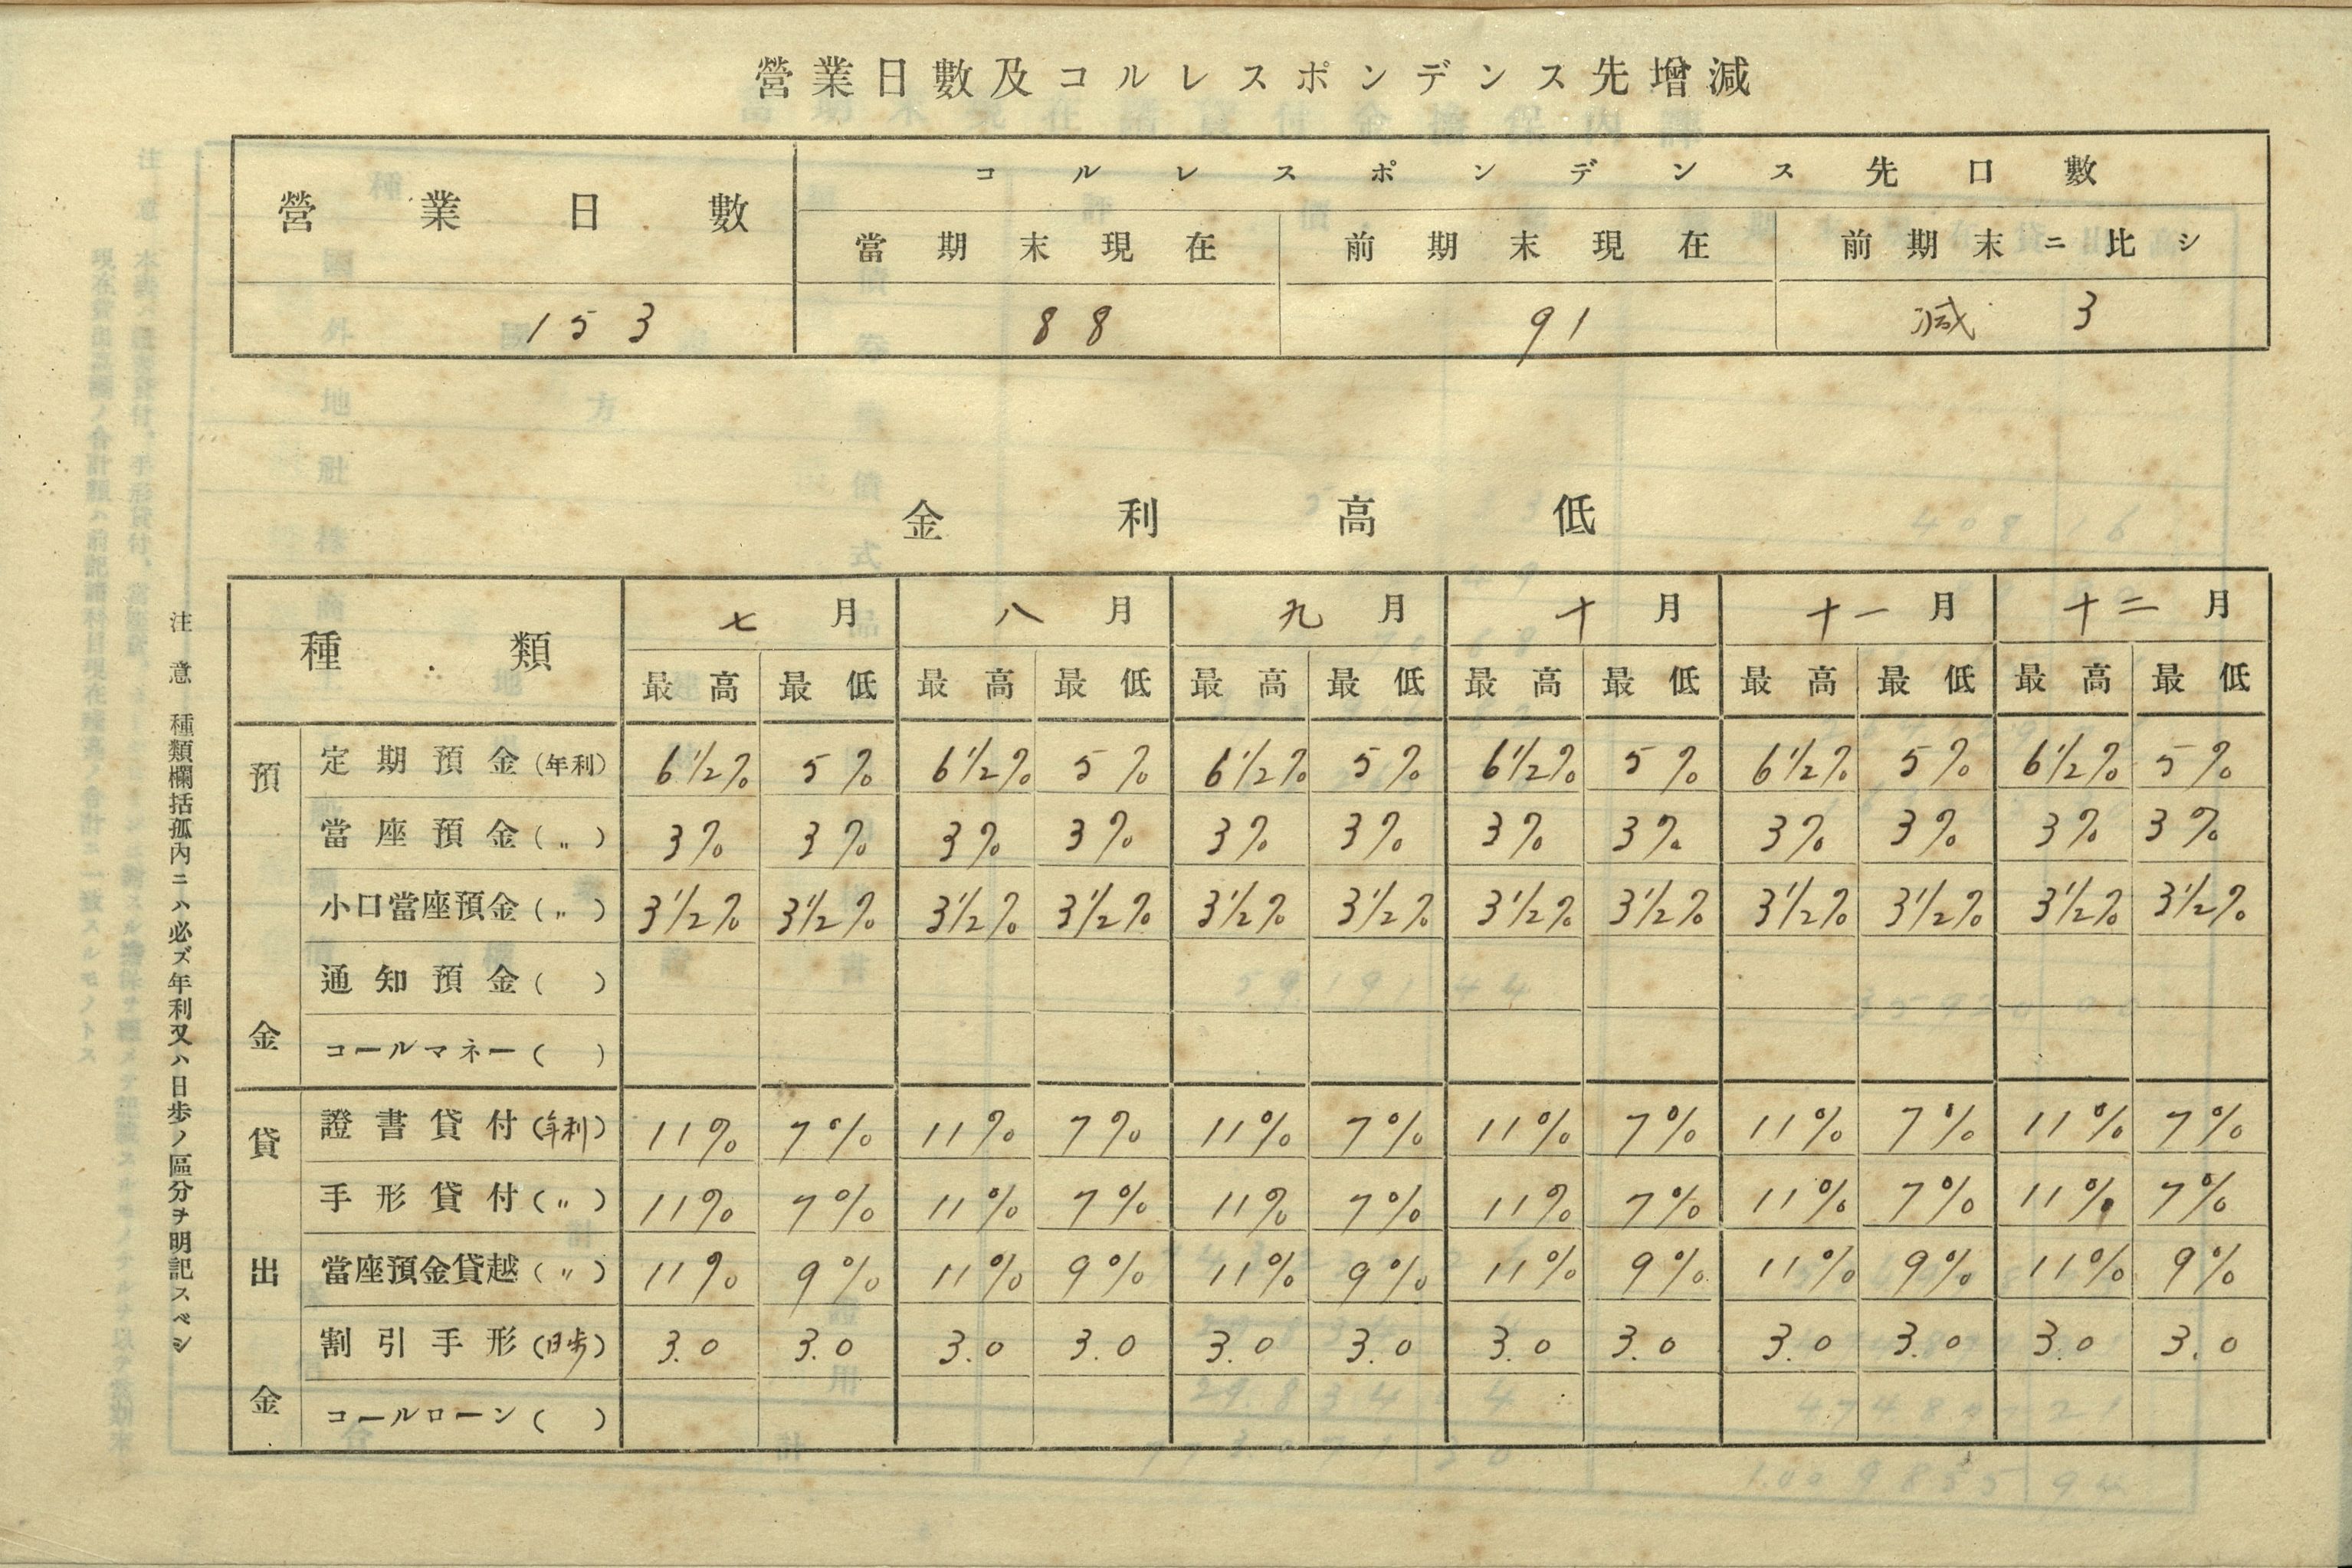 營業日數及コルレスポンデンス先增減
營業日數 コルレスポンデンス先口數
當期末現在 前期末現在 前期末ニ比シ
153 88 91 減 3
金利高低
種類 七月 八月 九月 十月 十一月 十二月
最高 最低 最高 最低 最高 最低 最高 最低 最高 最低 最高 最低
預金
定期預金(年利) 6½% 5% 6½% 5% 6½% 5% 6½% 5% 6½% 5% 6½% 5%
當座預金(〃) 3% 3% 3% 3% 3% 3% 3% 3% 3% 3% 3% 3%
小口當座預金(〃) 3½% 3½% 3½% 3½% 3½% 3½% 3½% 3½% 3½% 3½% 3½% 3½%
通知預金( )
コールマネー( )
貸出金
證書貸付(年利) 11% 7% 11% 7% 11% 7% 11% 7% 11% 7% 11% 7%
手形貸付(〃) 11% 7% 11% 7% 11% 7% 11% 7% 11% 7% 11% 7%
當座預金貸越(〃) 11% 9% 11% 9% 11% 9% 11% 9% 11% 9% 11% 9%
割引手形(日歩) 3.0 3.0 3.0 3.0 3.0 3.0 3.0 3.0 3.0 3.0 3.0 3.0
コールローン( )
注意 種類欄括孤內ニハ必ズ年利又ハ日歩ノ區分ヲ明記スベシ